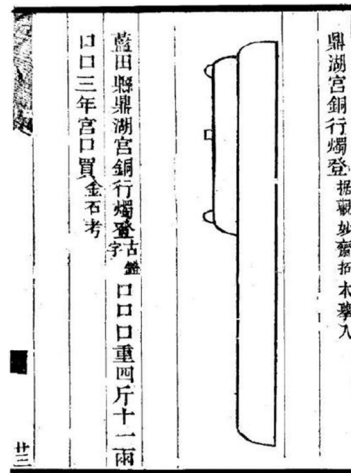 鼎湖宮銅行燭登据觀妙齋拓本摹入
藍田縣鼎湖宮銅行燭豋古鐙字口口口重四斤十一兩
口口三年宮口買金石考
廿三